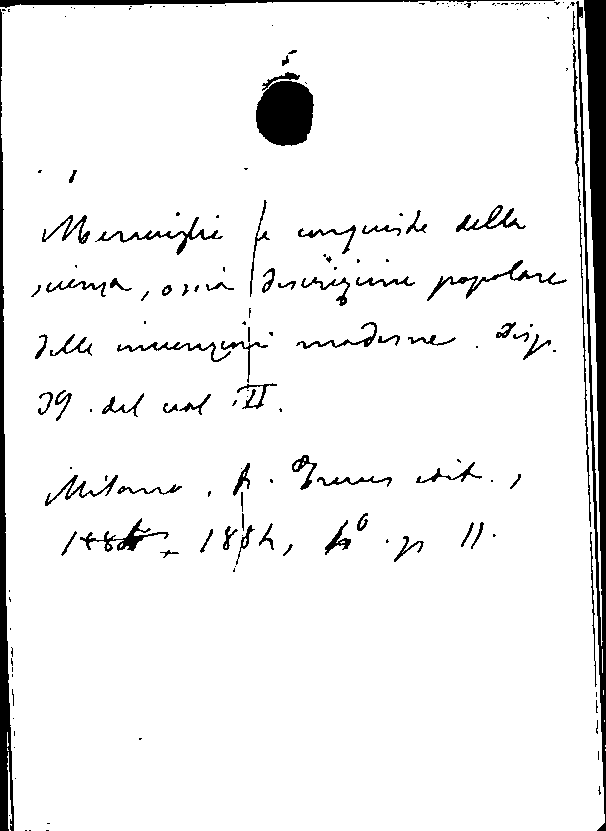 Meraviglie e conquiste della
scienza, ossia descrizione popolare
delle invenzioni moderne. Disp.
39. del vol. II.
Milano, fr. Treves edit.,
1884, 4° p 11.